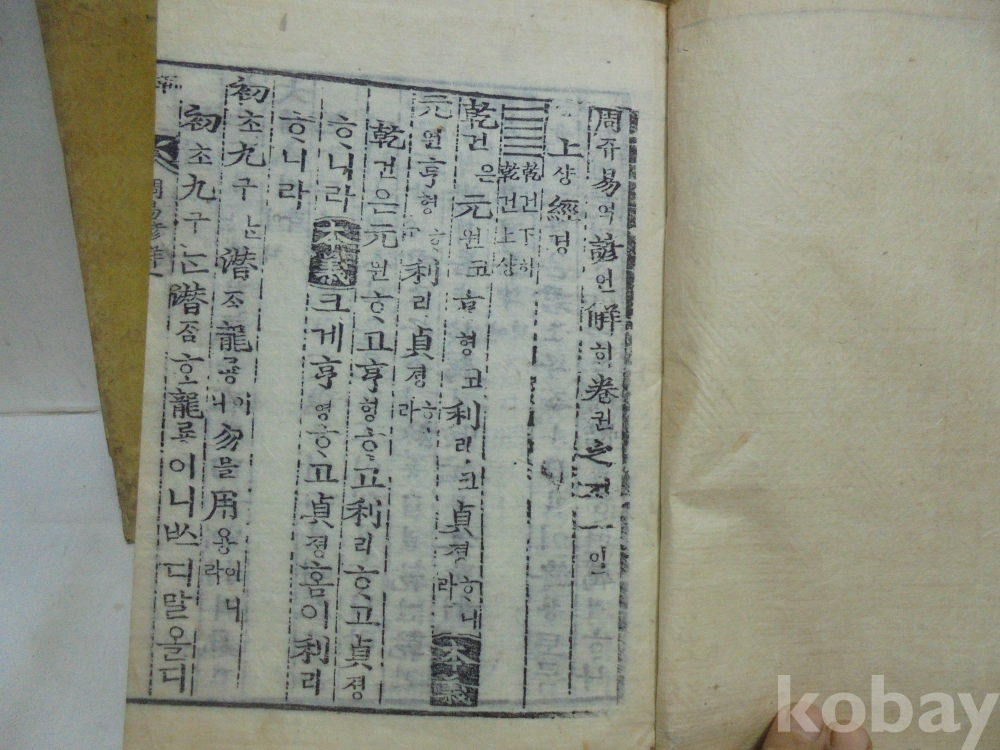 周쥬易역諺언解ᄒᆡ卷권之지一일
上샹經경
乾건下하
乾건上샹
乾건은元원코亨형코利리코貞뎡ᄒᆞ니라 本義
元원亨형ᄒᆞ고利리貞뎡ᄒᆞ니라
乾건은元원ᄒᆞ고亨형ᄒᆞ고利리ᄒᆞ고貞뎡
ᄒᆞ니라 本義 크게亨형ᄒᆞ고貞뎡홈이利리
ᄒᆞ니라
初초九구ᄂᆞᆫ潛ᄌᆞᆷ龍룡이니勿믈用용이니라
初초九구ᄂᆞᆫ潛ᄌᆞᆷᄒᆞᆫ龍룡이니ᄡᅳ디말올디
kobay